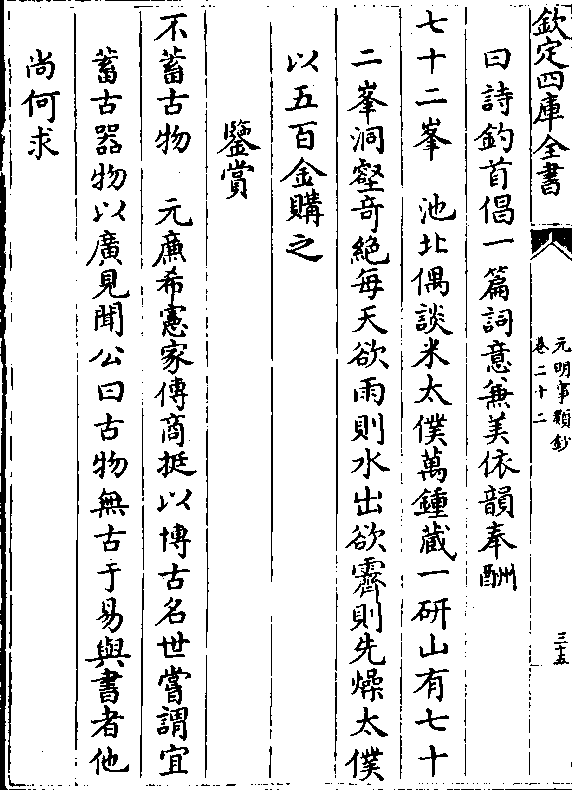 欽定四庫全書
元明事類鈔
卷二十二
三十五
曰詩釣首倡一篇詞意兼美依韻奉酬
七十二峯　池北偶談米太僕萬鍾藏一研山有七十
二峯洞壑奇絶每天欲雨則水出欲霽則先燥太僕
以五百金購之
鑒賞
不蓄古物　元廉希憲家傳商挺以博古名世嘗謂宜
蓄古器物以廣見聞公曰古物無古于易與書者他
尚何求